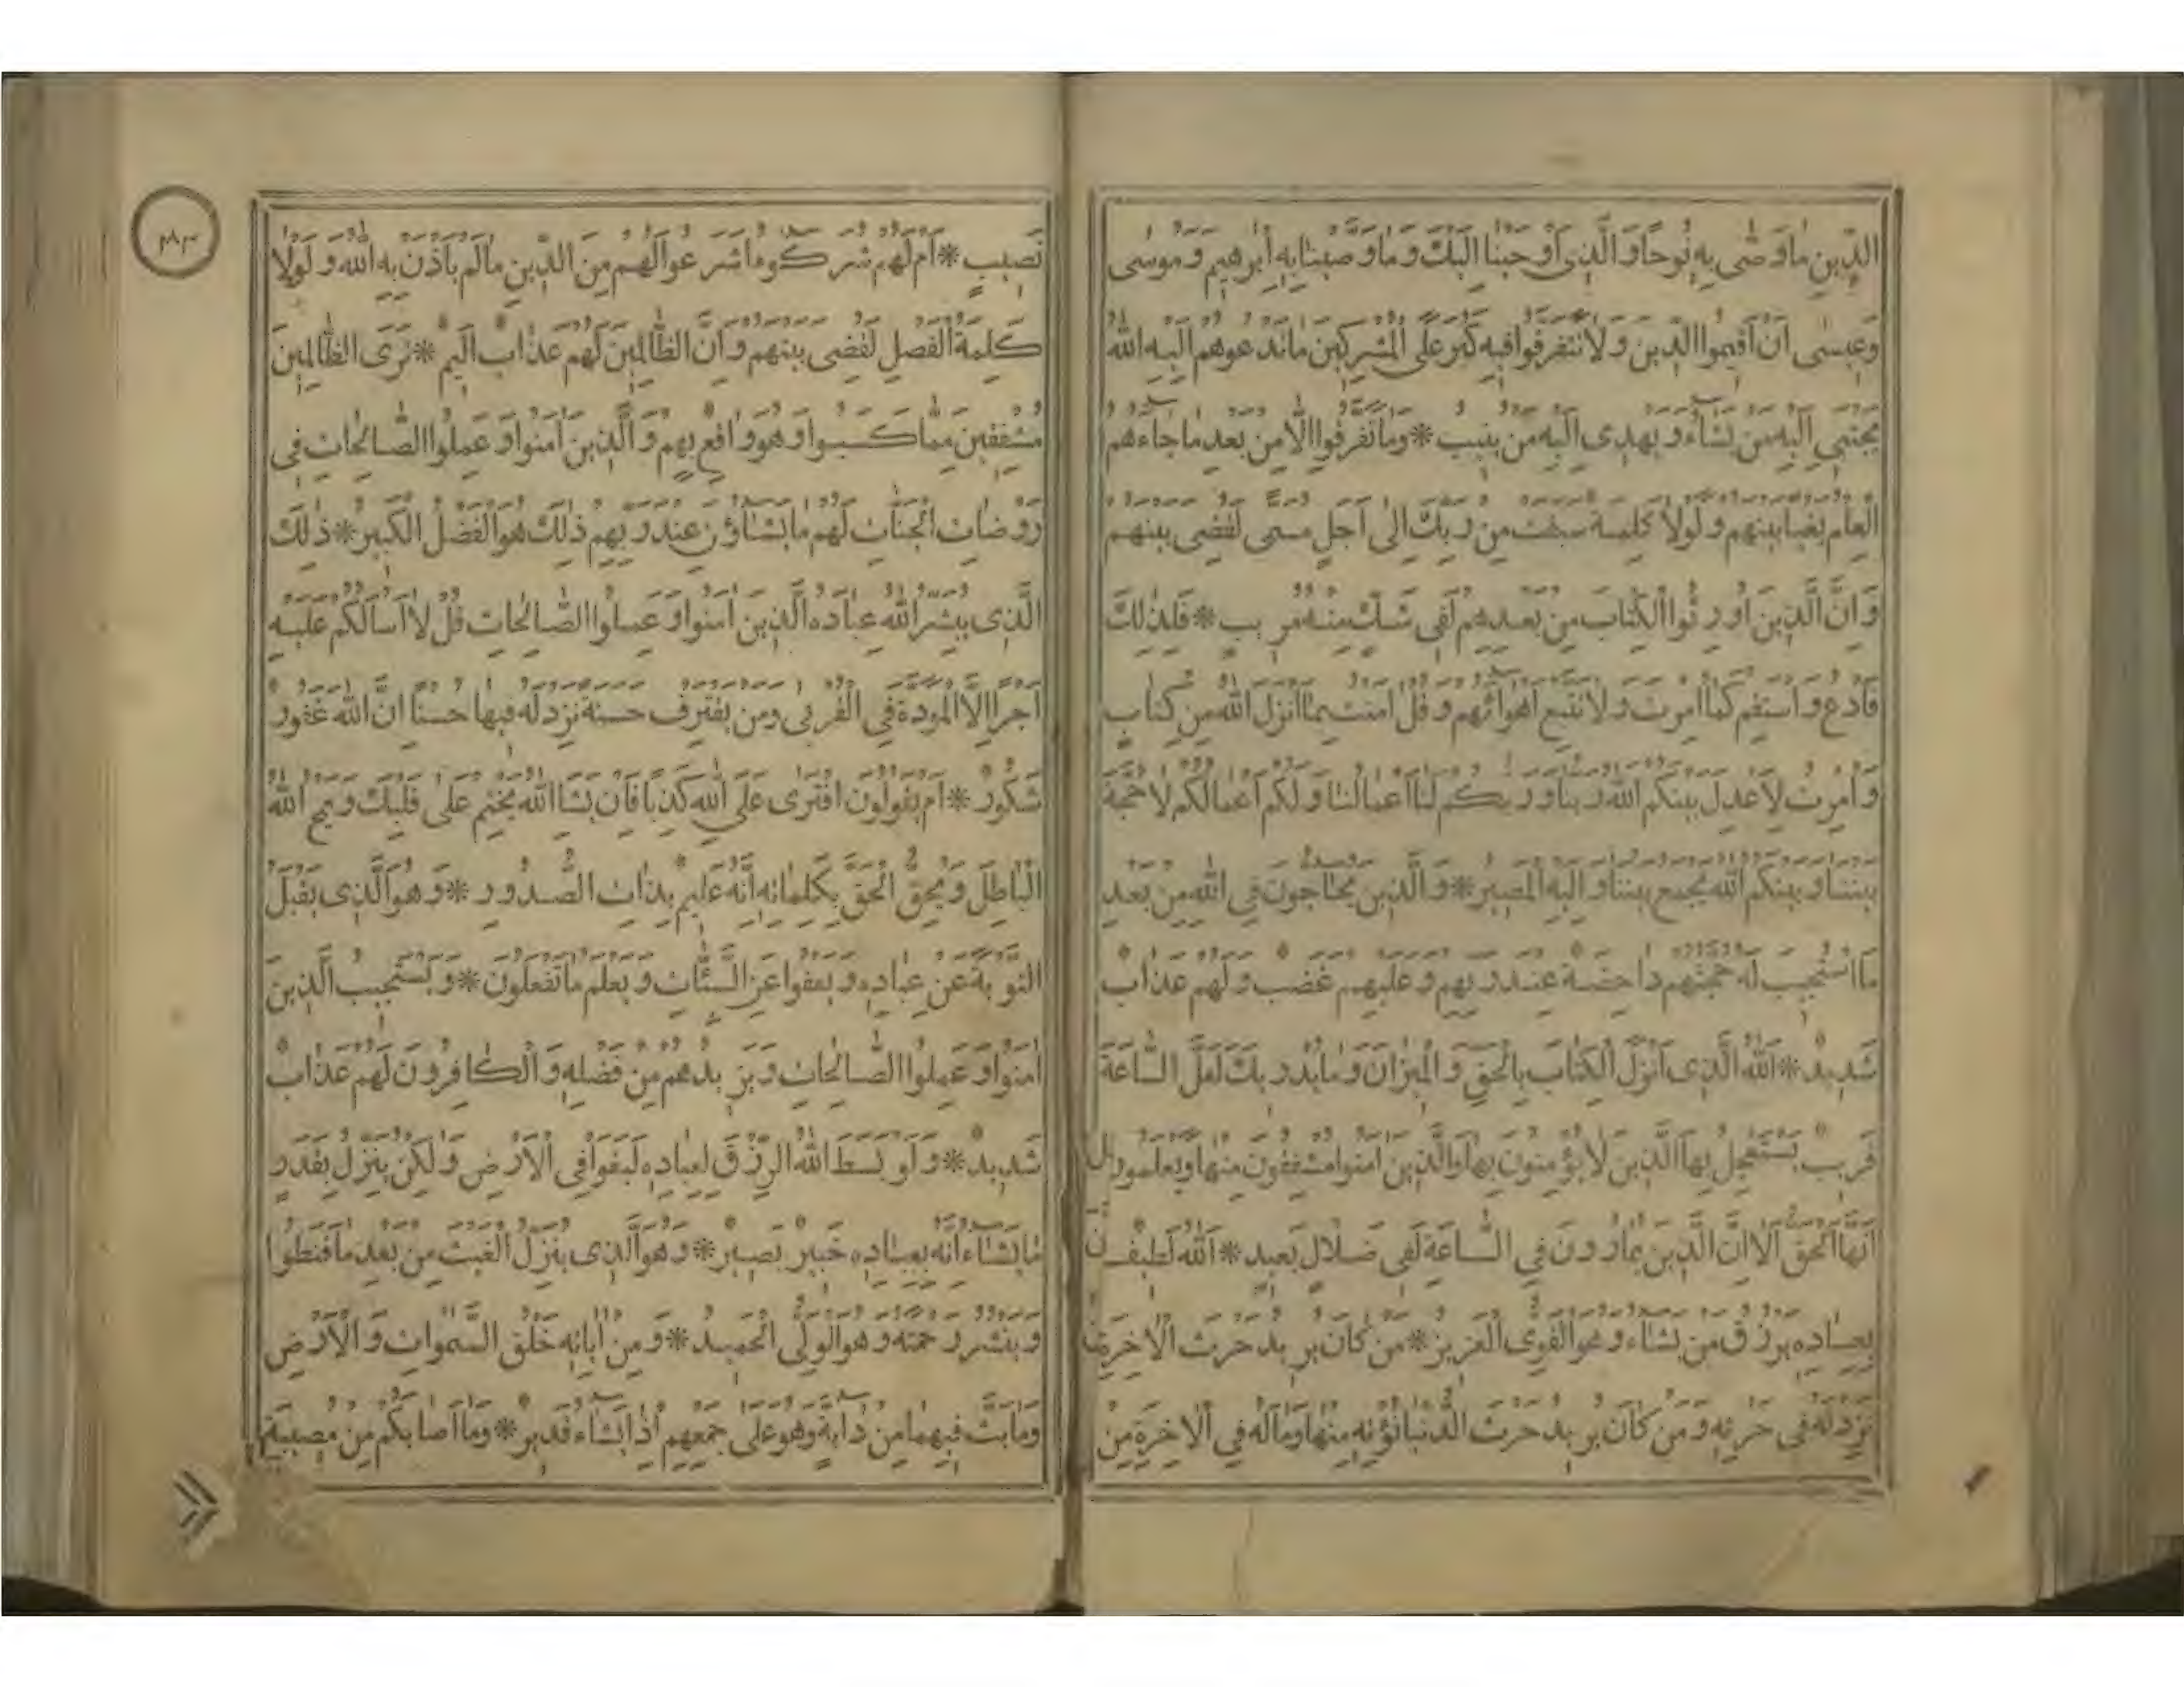 الدِّينِ مَا وَصَّى بِهِ نُوحًا وَالَّذِى أَوْحَيْنَا إِلَيْكَ وَمَا وَصَّيْنَا بِهِ إِبْرَهِيمَ وَمُوسَى
وَعِيسَى أَنْ أَقِيمُوا الدِّينَ وَلَا تَتَفَرَّقُوا فِيهِ كَبُرَ عَلَى الْمُشْرِكِينَ مَا تَدْعُوهُمْ إِلَيْهِ اللهُ
يَجْتَبِى إِلَيْهِ مَنْ يَشَاءُ وَيَهْدِى إِلَيْهِ مَنْ يُنِيبُ * وَمَا تَفَرَّقُوا إِلَّا مِنْ بَعْدِ مَا جَاءَهُمُ
الْعِلْمُ بَغْيًا بَيْنَهُمْ وَلَوْلَا كَلِمَةٌ سَبَقَتْ مِنْ رَبِّكَ إِلَى أَجَلٍ مُسَمًّى لَقُضِىَ بَيْنَهُمْ
وَإِنَّ الَّذِينَ أُورِثُوا الْكِتَابَ مِنْ بَعْدِهِمْ لَفِى شَكٍّ مِنْهُ مُرِيبٍ * فَلِذٰلِكَ
فَادْعُ وَاسْتَقِمْ كَمَا أُمِرْتَ وَلَا تَتَّبِعْ أَهْوَائَهُمْ وَقُلْ اٰمَنْتُ بِمَا أَنْزَلَ اللهُ مِنْ كِتَابٍ
وَأُمِرْتُ لِأَعْدِلَ بَيْنَكُمُ اللهُ رَبُّنَا وَرَبُّكُمْ لَنَا أَعْمَالُنَا وَلَكُمْ أَعْمَالُكُمْ لَا حُجَّةَ
بَيْنَنَا وَبَيْنَكُمُ اللهُ يَجْمَعُ بَيْنَنَا وَإِلَيْهِ الْمَصِيرُ * وَالَّذِينَ يُحَاجُّونَ فِى اللهِ مِنْ بَعْدِ
مَا اسْتُجِيبَ لَهُ حُجَّتُهُمْ دَاحِضَةٌ عِنْدَ رَبِّهِمْ وَعَلَيْهِمْ غَضَبٌ وَلَهُمْ عَذَابٌ
شَدِيدٌ * اَللهُ الَّذِى أَنْزَلَ الْكِتَابَ بِالْحَقِّ وَالْمِيزَانَ وَمَا يُدْرِيكَ لَعَلَّ السَّاعَةَ
قَرِيبٌ يَسْتَعْجِلُ بِهَا الَّذِينَ لَا يُؤْمِنُونَ بِهَا وَالَّذِينَ اٰمَنُوا مُشْفِقُونَ مِنْهَا وَيَعْلَمُونَ
أَنَّهَا الْحَقُّ أَلَا إِنَّ الَّذِينَ يُمَارُونَ فِى السَّاعَةِ لَفِى ضَلَالٍ بَعِيدٍ * اَللهُ لَطِيفٌ
بِعِبَادِهِ يَرْزُقُ مَنْ يَشَاءُ وَهُوَ الْقَوِىُّ الْعَزِيزُ * مَنْ كَانَ يُرِيدُ حَرْثَ الْاٰخِرَةِ
نَزِدْ لَهُ فِى حَرْثِهِ وَمَنْ كَانَ يُرِيدُ حَرْثَ الدُّنْيَا نُؤْتِهِ مِنْهَا وَمَا لَهُ فِى الْاٰخِرَةِ مِنْ
نَصِيبٍ * أَمْ لَهُمْ شُرَكٰؤُا شَرَعُوا لَهُمْ مِنَ الدِّينِ مَا لَمْ يَأْذَنْ بِهِ اللهُ وَلَوْلَا
كَلِمَةُ الْفَصْلِ لَقُضِىَ بَيْنَهُمْ وَإِنَّ الظَّالِمِينَ لَهُمْ عَذَابٌ أَلِيمٌ * تَرَى الظَّالِمِينَ
مُشْفِقِينَ مِمَّا كَسَبُوا وَهُوَ وَاقِعٌ بِهِمْ وَالَّذِينَ اٰمَنُوا وَعَمِلُوا الصَّالِحَاتِ فِى
رَوْضَاتِ الْجَنَّاتِ لَهُمْ مَا يَشَاؤُنَ عِنْدَ رَبِّهِمْ ذٰلِكَ هُوَ الْفَضْلُ الْكَبِيرُ * ذٰلِكَ
الَّذِى يُبَشِّرُ اللهُ عِبَادَهُ الَّذِينَ اٰمَنُوا وَعَمِلُوا الصَّالِحَاتِ قُلْ لَا أَسْأَلُكُمْ عَلَيْهِ
أَجْرًا إِلَّا الْمَوَدَّةَ فِى الْقُرْبَى وَمَنْ يَقْتَرِفْ حَسَنَةً نَزِدْ لَهُ فِيهَا حُسْنًا إِنَّ اللهَ غَفُورٌ
شَكُورٌ * أَمْ يَقُولُونَ افْتَرَى عَلَى اللهِ كَذِبًا فَإِنْ يَشَأِ اللهُ يَخْتِمْ عَلَى قَلْبِكَ وَيَمْحُ اللهُ
الْبَاطِلَ وَيُحِقُّ الْحَقَّ بِكَلِمَاتِهِ إِنَّهُ عَلِيمٌ بِذَاتِ الصُّدُورِ * وَهُوَ الَّذِى يَقْبَلُ
التَّوْبَةَ عَنْ عِبَادِهِ وَيَعْفُوا عَنِ السَّيِّئَاتِ وَيَعْلَمُ مَا تَفْعَلُونَ * وَيَسْتَجِيبُ الَّذِينَ
اٰمَنُوا وَعَمِلُوا الصَّالِحَاتِ وَيَزِيدُهُمْ مِنْ فَضْلِهِ وَالْكَافِرُونَ لَهُمْ عَذَابٌ
شَدِيدٌ * وَلَوْ بَسَطَ اللهُ الرِّزْقَ لِعِبَادِهِ لَبَغَوْا فِى الْأَرْضِ وَلَكِنْ يُنَزِّلُ بِقَدَرٍ
مَا يَشَاءُ إِنَّهُ بِعِبَادِهِ خَبِيرٌ بَصِيرٌ * وَهُوَ الَّذِى يُنَزِّلُ الْغَيْثَ مِنْ بَعْدِ مَا قَنَطُوا
وَيَنْشُرُ رَحْمَتَهُ وَهُوَ الْوَلِىُّ الْحَمِيدُ * وَمِنْ اٰيَاتِهِ خَلْقُ السَّمٰوَاتِ وَالْأَرْضِ
وَمَا بَثَّ فِيهِمَا مِنْ دَابَّةٍ وَهُوَ عَلَى جَمْعِهِمْ إِذَا يَشَاءُ قَدِيرٌ * وَمَا أَصَابَكُمْ مِنْ مُصِيبَةٍ